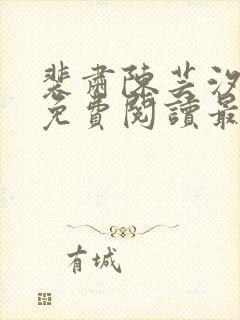 裴肅陳芸汐
免費閱讀最
有城